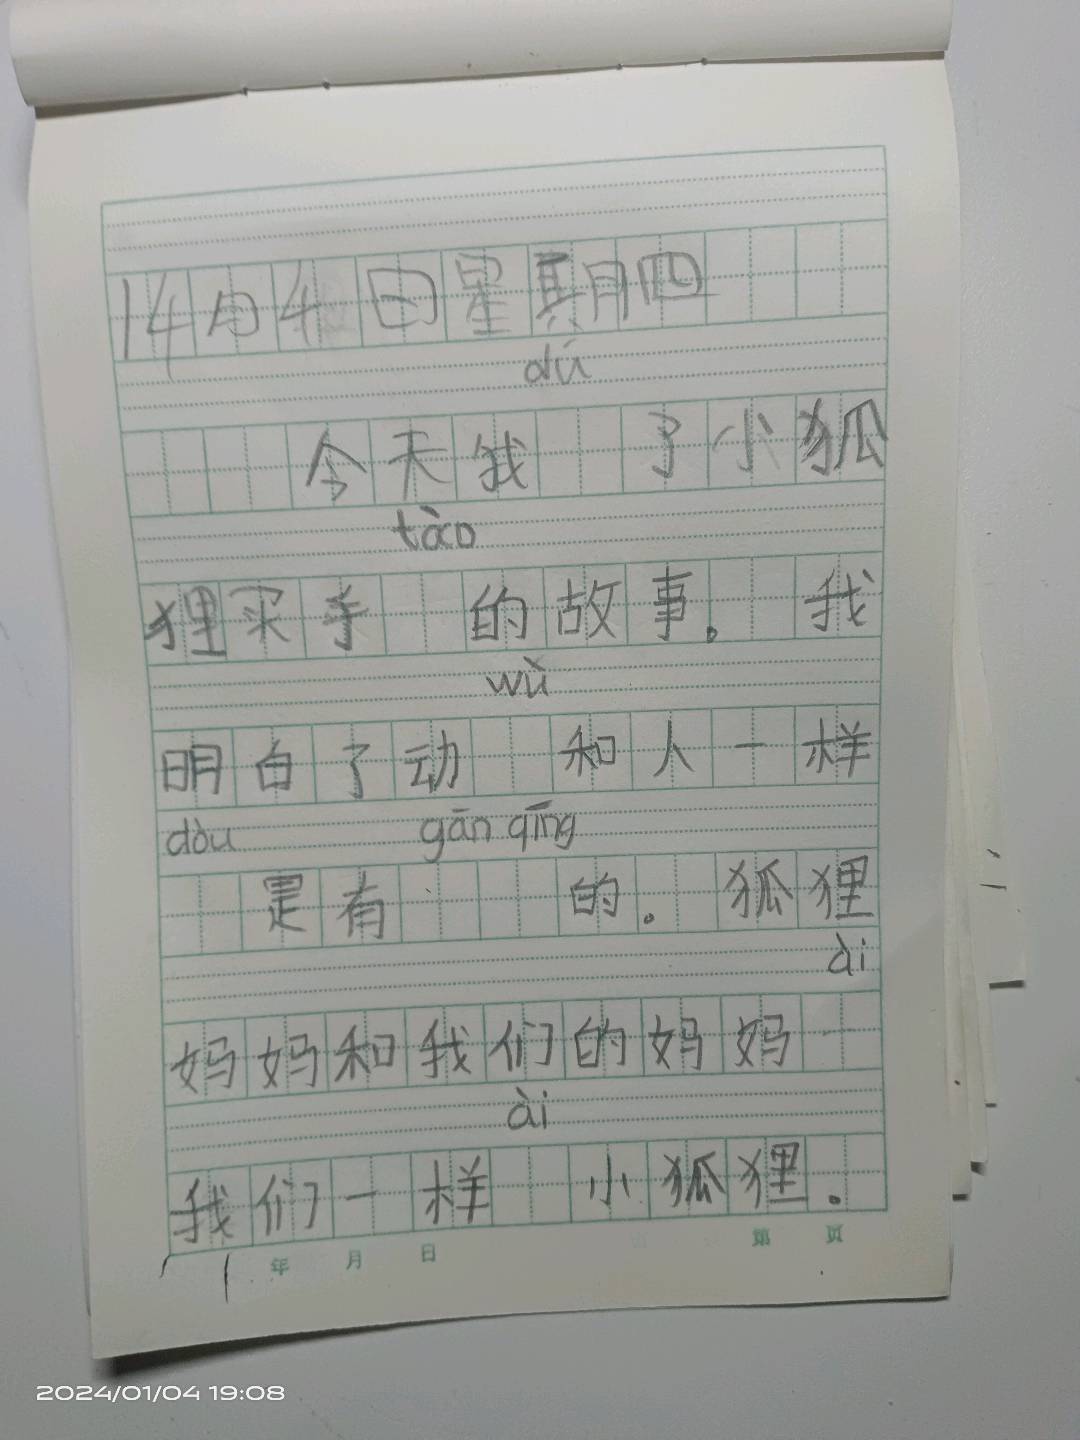 14月4日星期四
dú
今天我 了小狐
tào
狸买手 的故事。我
wù
明白了动 和人一样
dòu gān qīng
是有 的。狐狸
ài
妈妈和我们的妈妈一
ài
我们一样 小狐狸。
年 月 日 第 页
2024/01/04 19:08